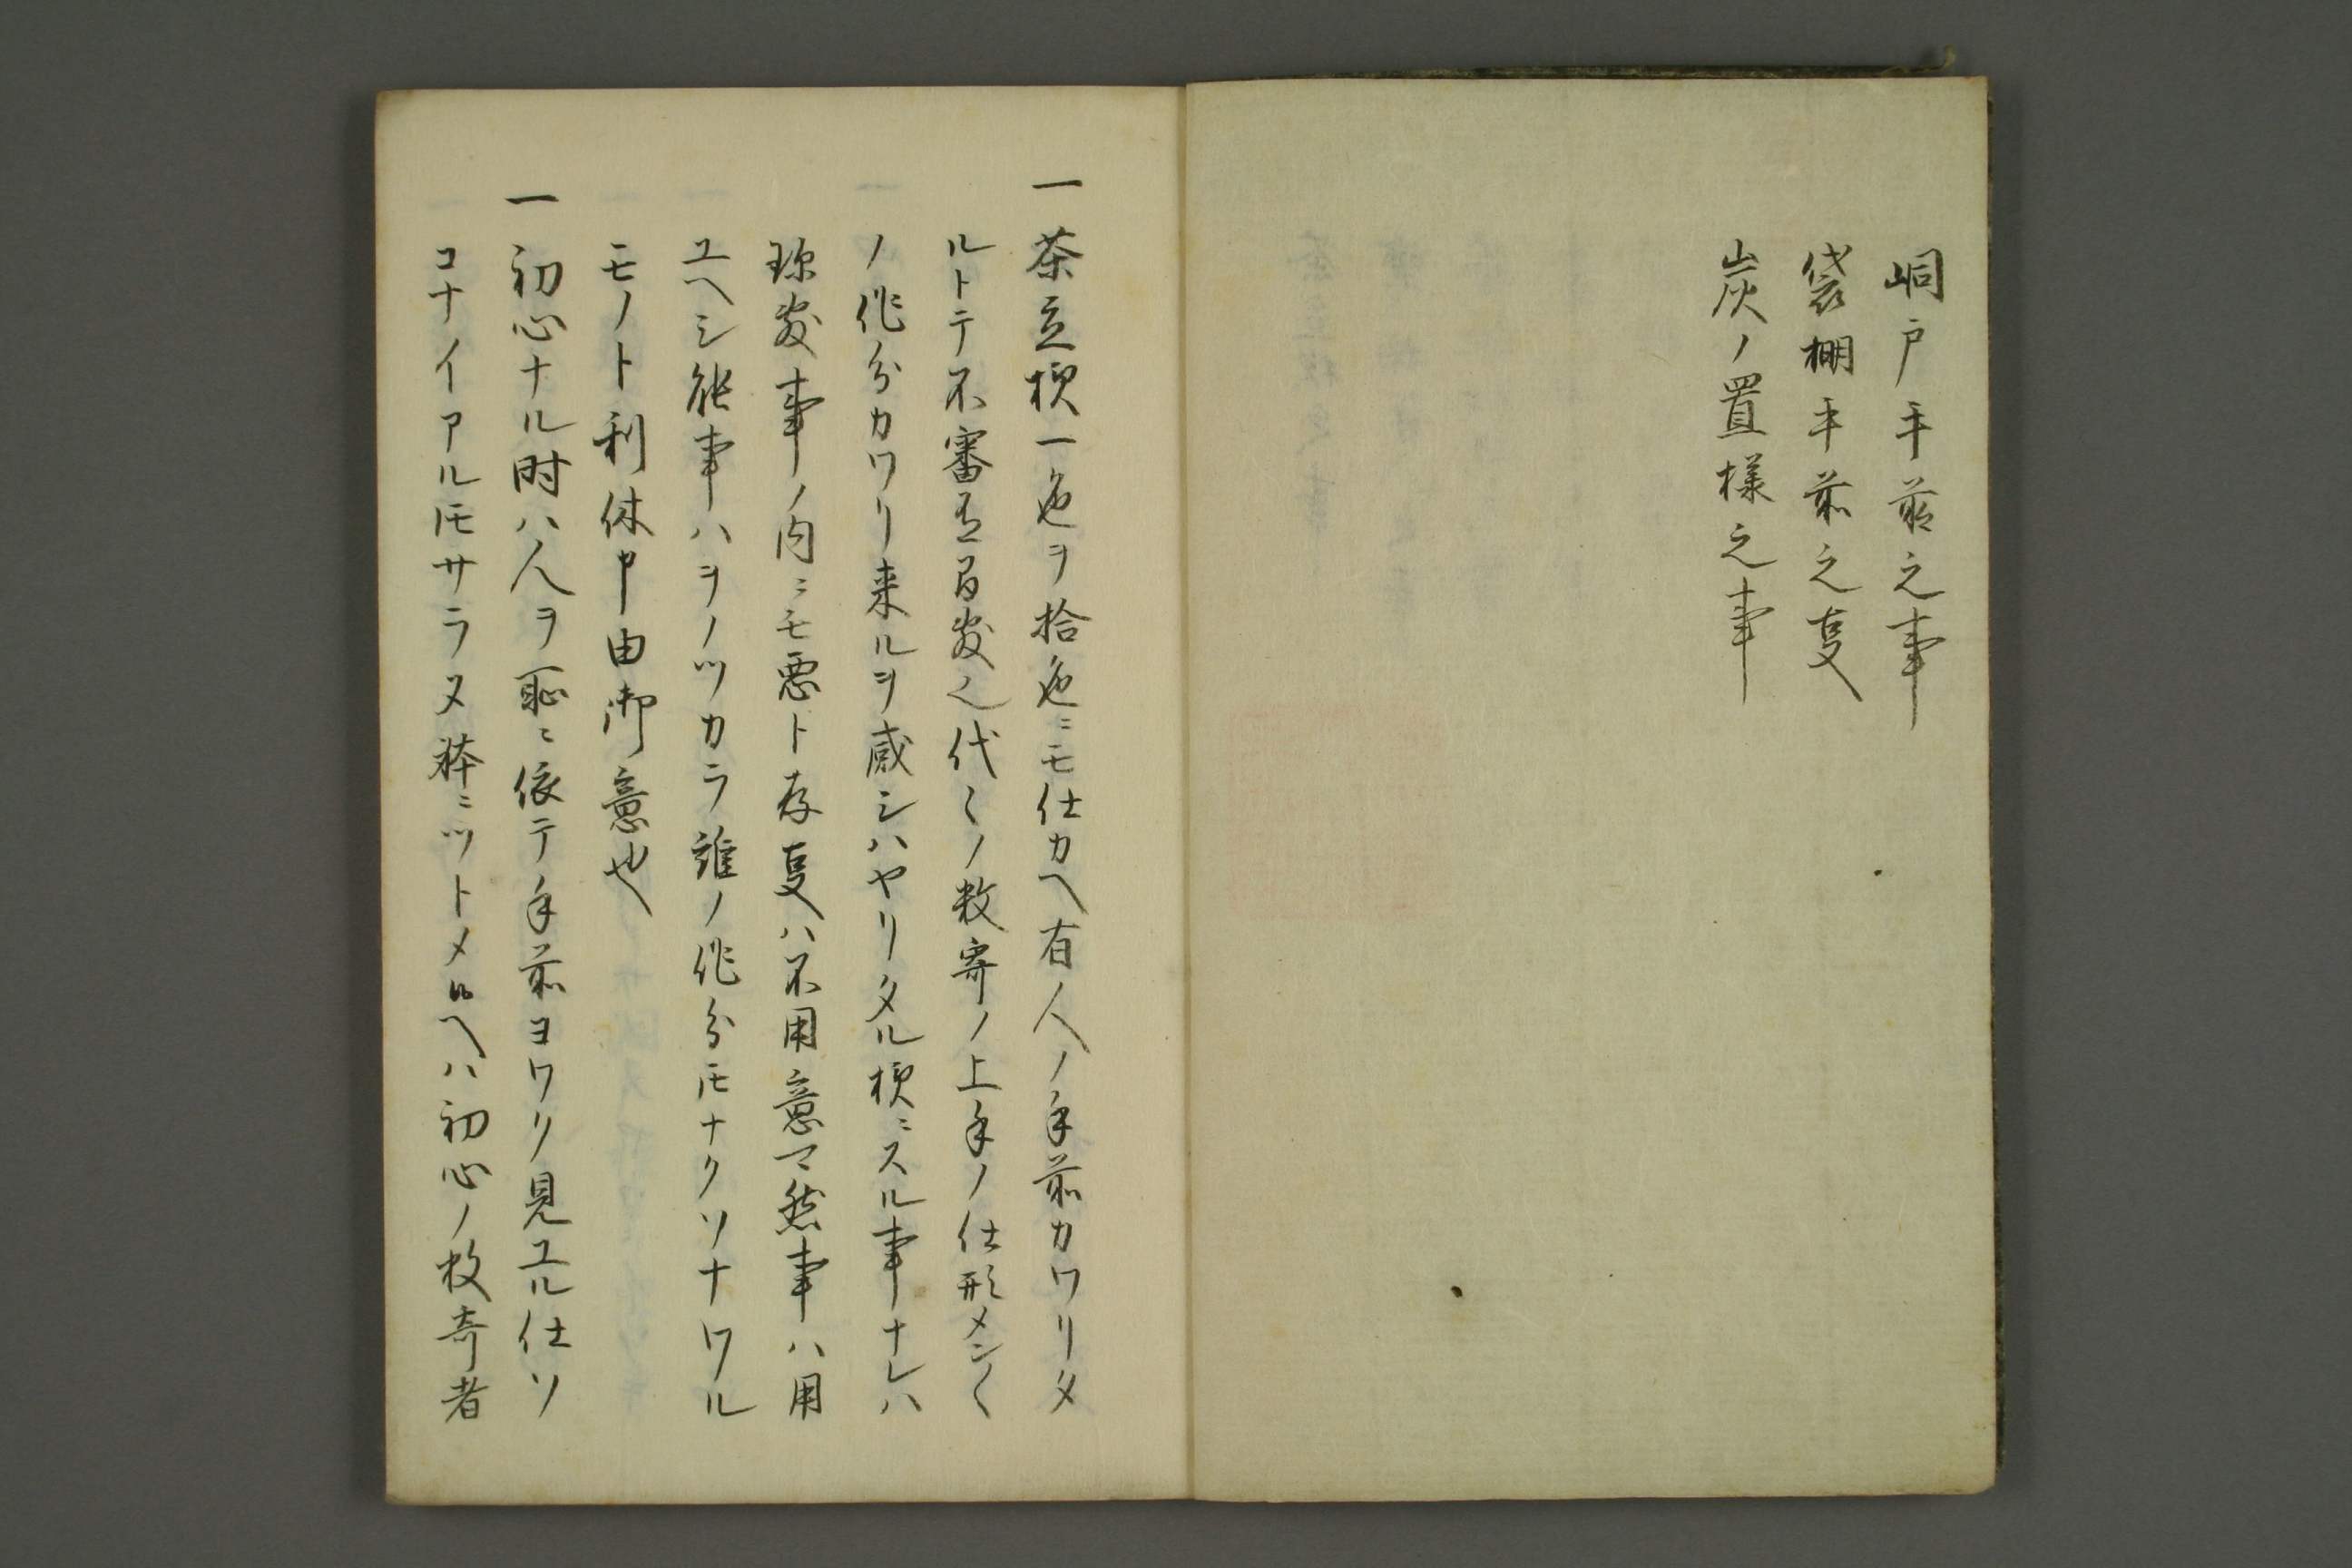 峒戸手前之事
袋棚手前之叓
炭ノ置様之事
一茶立様一色ヲ拾色ニモ仕カヘ有人ノ手前カワリタ
ルトテ不審 代〻ノ数寄ノ上手ノ仕形メン〱
ノ作分カワリ来ルヲ感シハヤリタル様ニスル事ナレハ
珎敷事ノ内ニモ悪ト存叓ハ不用意マ然事ハ用
ユヘシ能事ハヲノツカラ誰ノ作分ニモナクソナワル
モノト利休申由御意也
一初心ナル時ハ人ヲ恥ニ依テ手前ヨワリ見ユル仕ソ
コナイアルトモサラヌ躰ニツトメルヘハ初心ノ数奇者